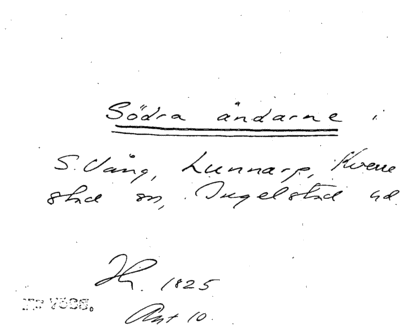 Södra ändarne i
S. Vång, Lunnarp, Kverre
stad sn, Ingelstad hd.
1825
Ant 10.